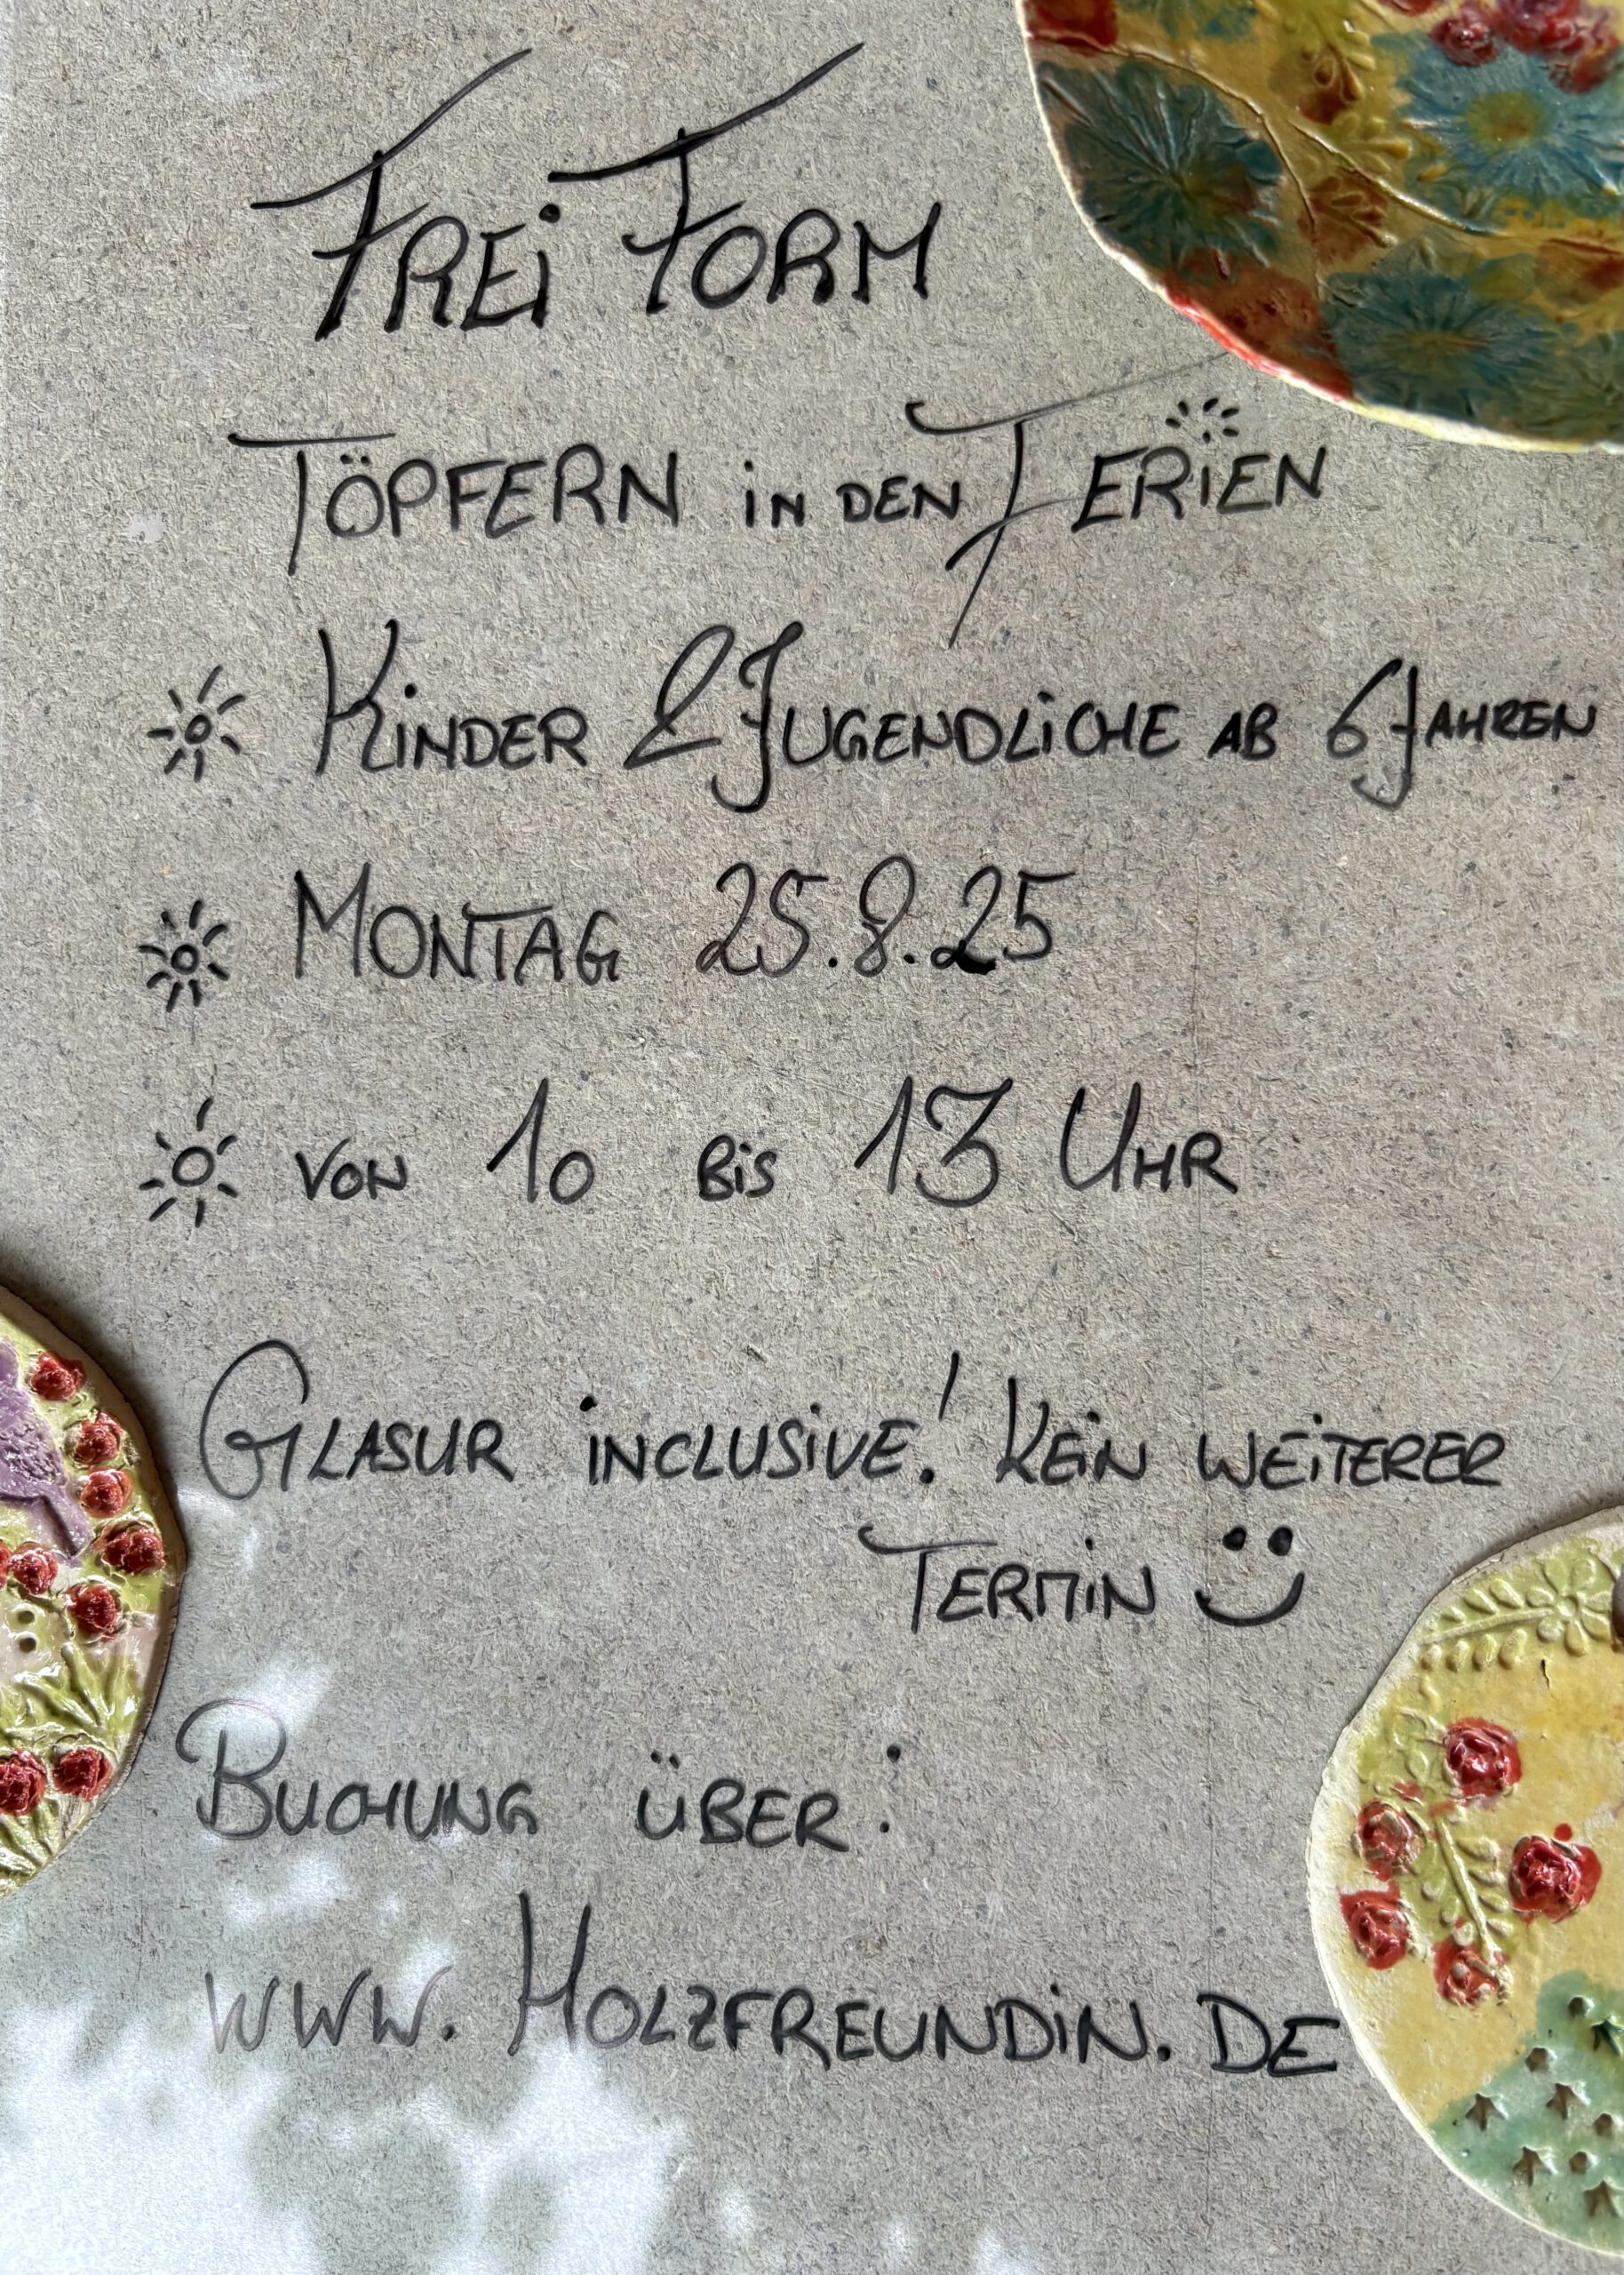 FREi FORM
TÖPFERN iN DEN FERiEN
KiNDER & JUGENDLiCHE AB 6 JAHREN
MONTAG 25.8.25
VON 10 BiS 13 UHR
GLASUR iNCLUSiVE! KEiN WEiTERER
TERMiN :)
BUCHUNG ÜBER:
WWW.HOLZFREUNDiN.DE